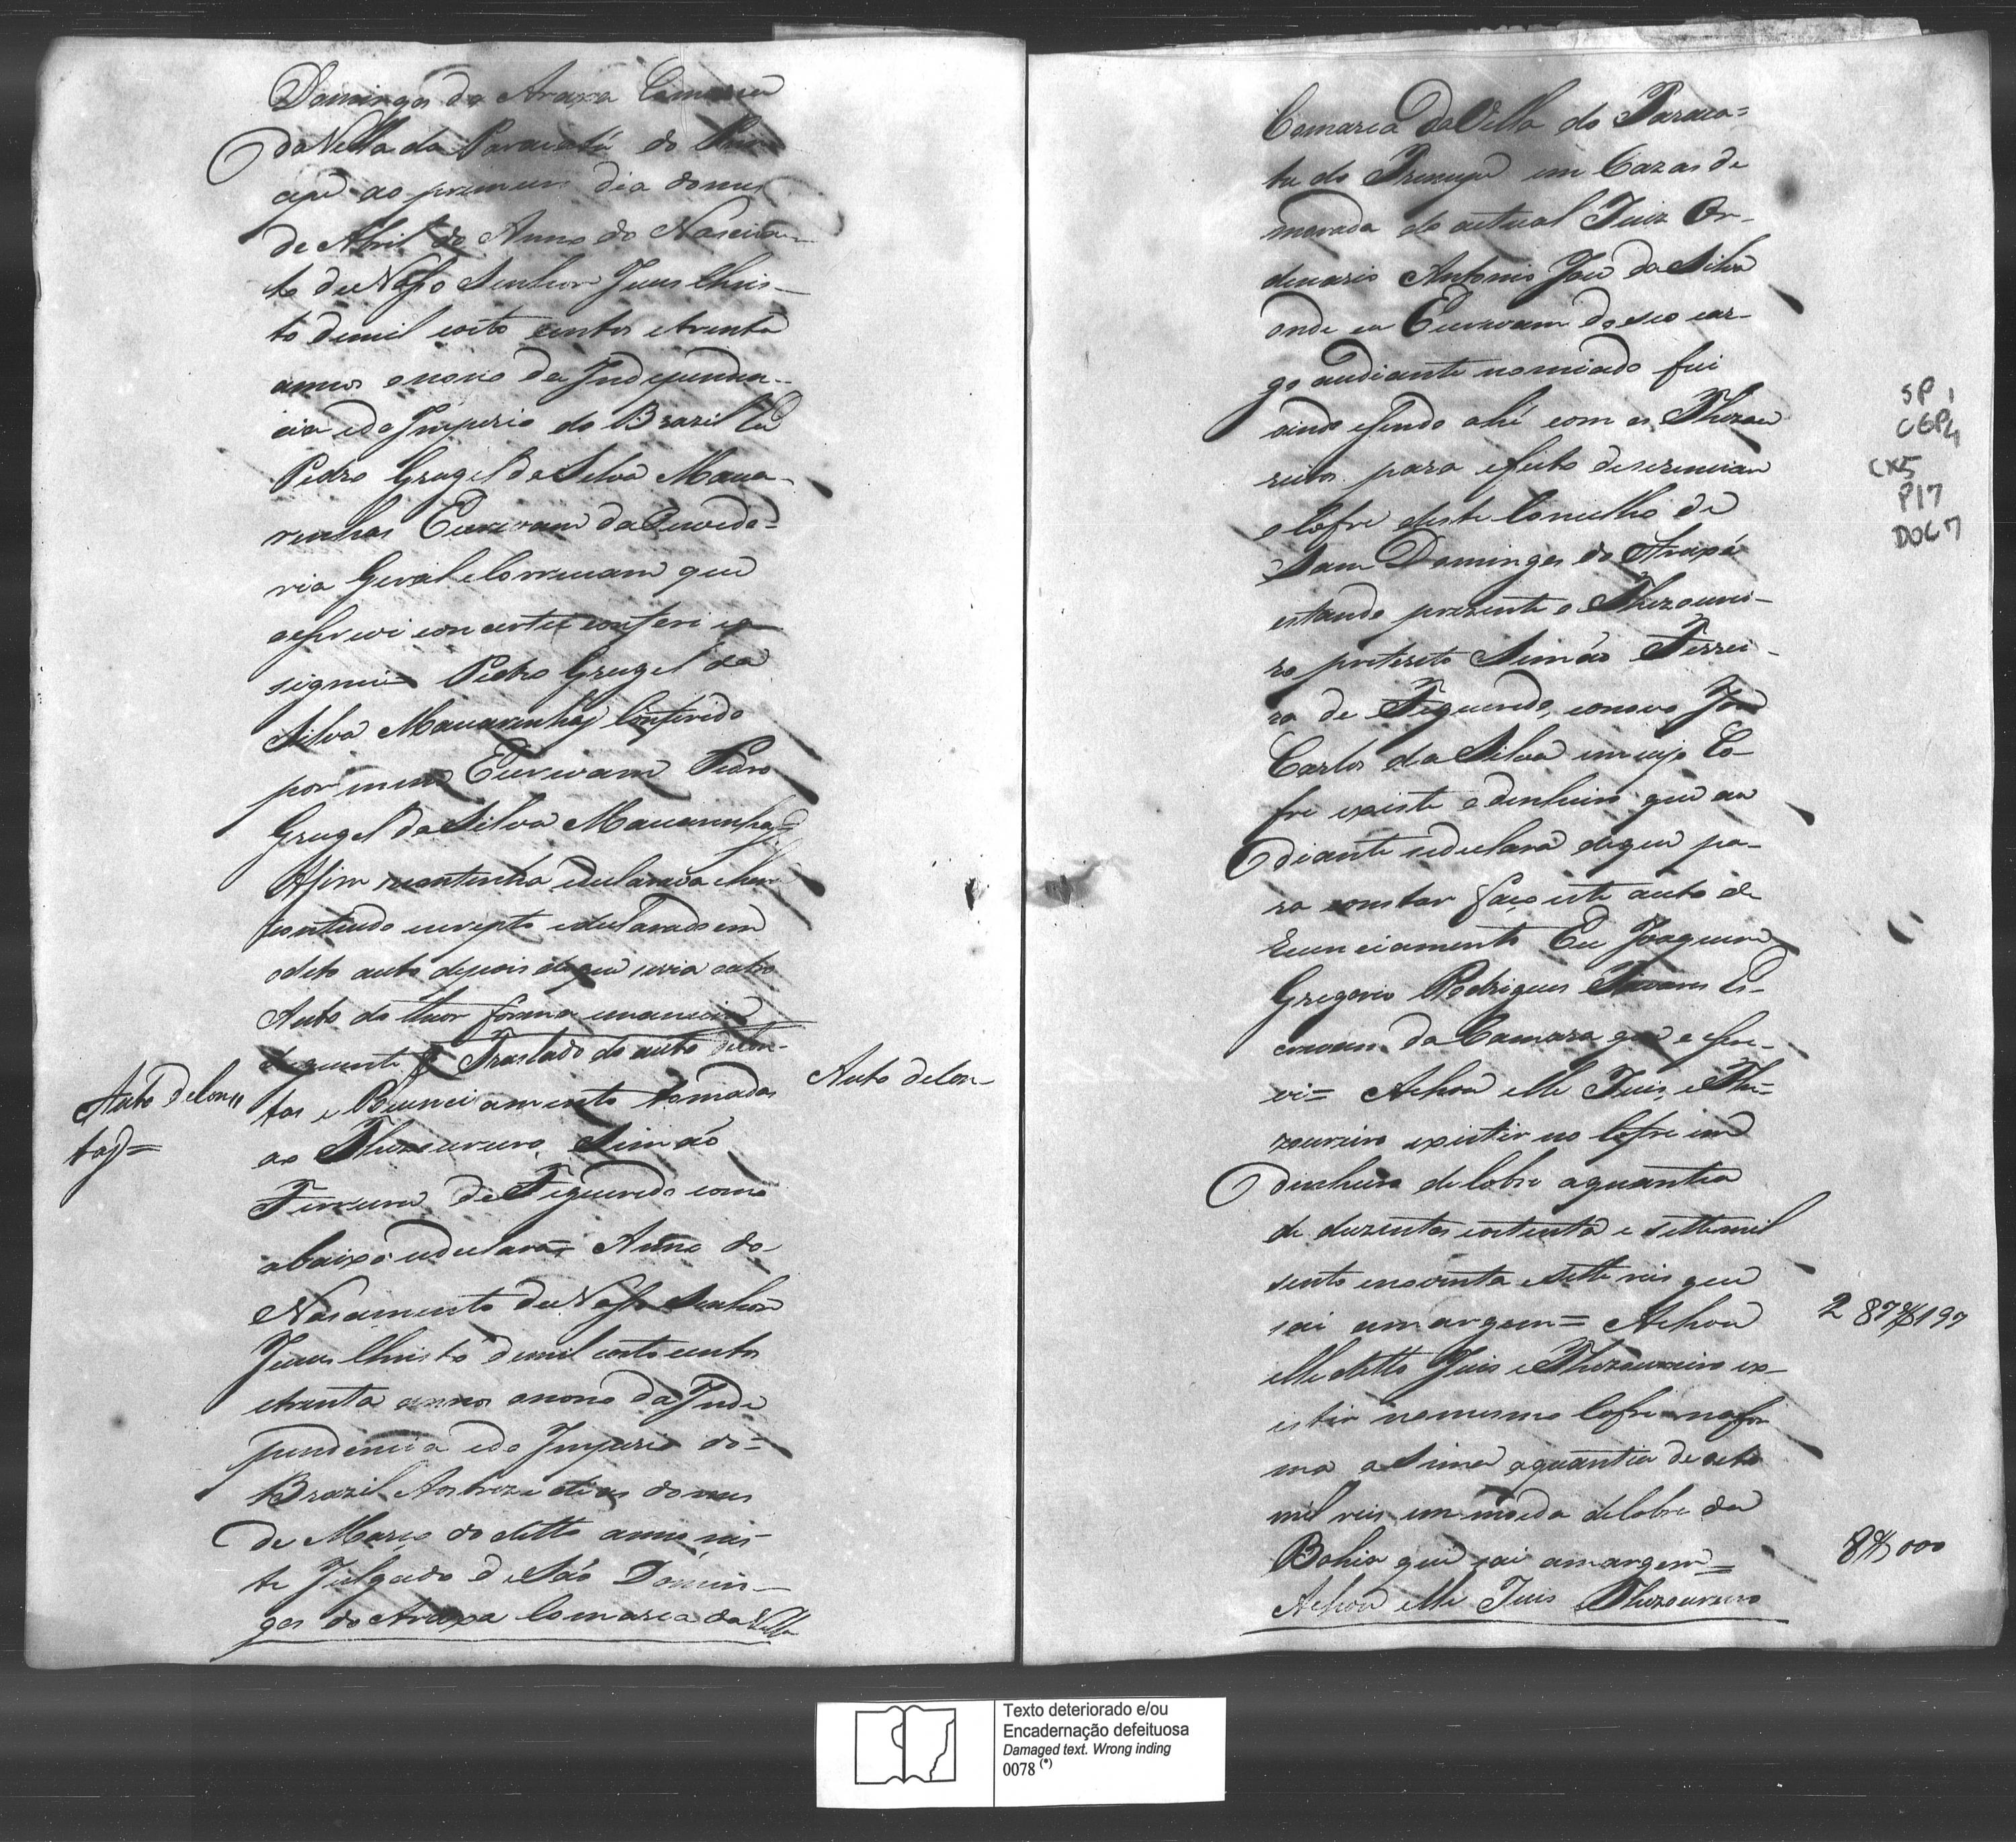 Domingos do Araxa Comarca
da Villa da Paracatú do Prin
cepe ao primeiro dia domes
de Abril do Anno do Nascimen
to de Nosso Senhor Jesus Chris-
to demil oito centos etrinta
annos onono da Independen-
cia edo Imperio do Brazil Eu
Pedro Grugel da Silva Masca-
renhas Escrivam da Provedo=
ria Geral eCorreicam que
oescrevi concertei conferi e
signei= Pedro Grugel da
Silva Mascarenhas Conferido
por mim Escrivam Pedro
Grugel da Silva Mascarenhas
Assim secontinha edeclarava e hera
contendo escripto edeclarado em
odito auto depois deque sevia outro
Auto do theor forma emaneira
seguinte Traslado do auto deCon-
Auto deCon
tas e Renunciamento tomadas
Auto deCon
tas=
ao Thezoureiro, Simão
Ferreira de Figueredo como
abaixo sedeclara= Anno do
Nascimento de Nosso Senhor
Jesus Christo demil oito centos
etrinta annos onono da Inde
pendencia edo Imperio do=
Brazil Aos treze dias domes
de Março do ditto anno nes-
te Julgado de São Domin-
gos do Araxa Comarca da Villa
Comarca da Villa do Paraca=
tu do Princepe em Cazas de
morada do actual Juiz Or-
denario Antonio Joze da Silva
onde eu Escrivam do seo car-
go audiante nomiado fui
vindo esendo ahi com os Thezou
reiros para efeito de
o Cofre deste Concelho de
Sam Domingos do Araxá
estando prezente o Thezourei-
ro preterito Simão Ferrei-
ra de Figueredo, eonovo Joze
Carlos da Silva em cujo Co-
fre existe o dinheiro que au
diante sedeclara deque pa-
ra constar faço este auto de
Eu Joaquim
Gregorio Rodrigues Es-
crivam da Camara que o escre-
vi= Achou elle Juis, e The=
zoureiro existir no Cofre em
dinheiro de Cobre aquantia
de duzentos eoitenta e settemil
sento enoventa esette reis que
sai amargem= Achou
287$197
elle ditto Juis e Thezoureiro ex-
istir nomesmo Cofre nafor
ma asima aquantia de oito
mil reis em moeda deCobre da
Bahia que sai amargem=
8$000
Achou elle Juis Thezoureiro
SP 1
CGP4
CX5
P17
DOC 7
Texto deteriorado e/ou
Encadernação defeituosa
Damaged text. Wrong inding
0078 (*)